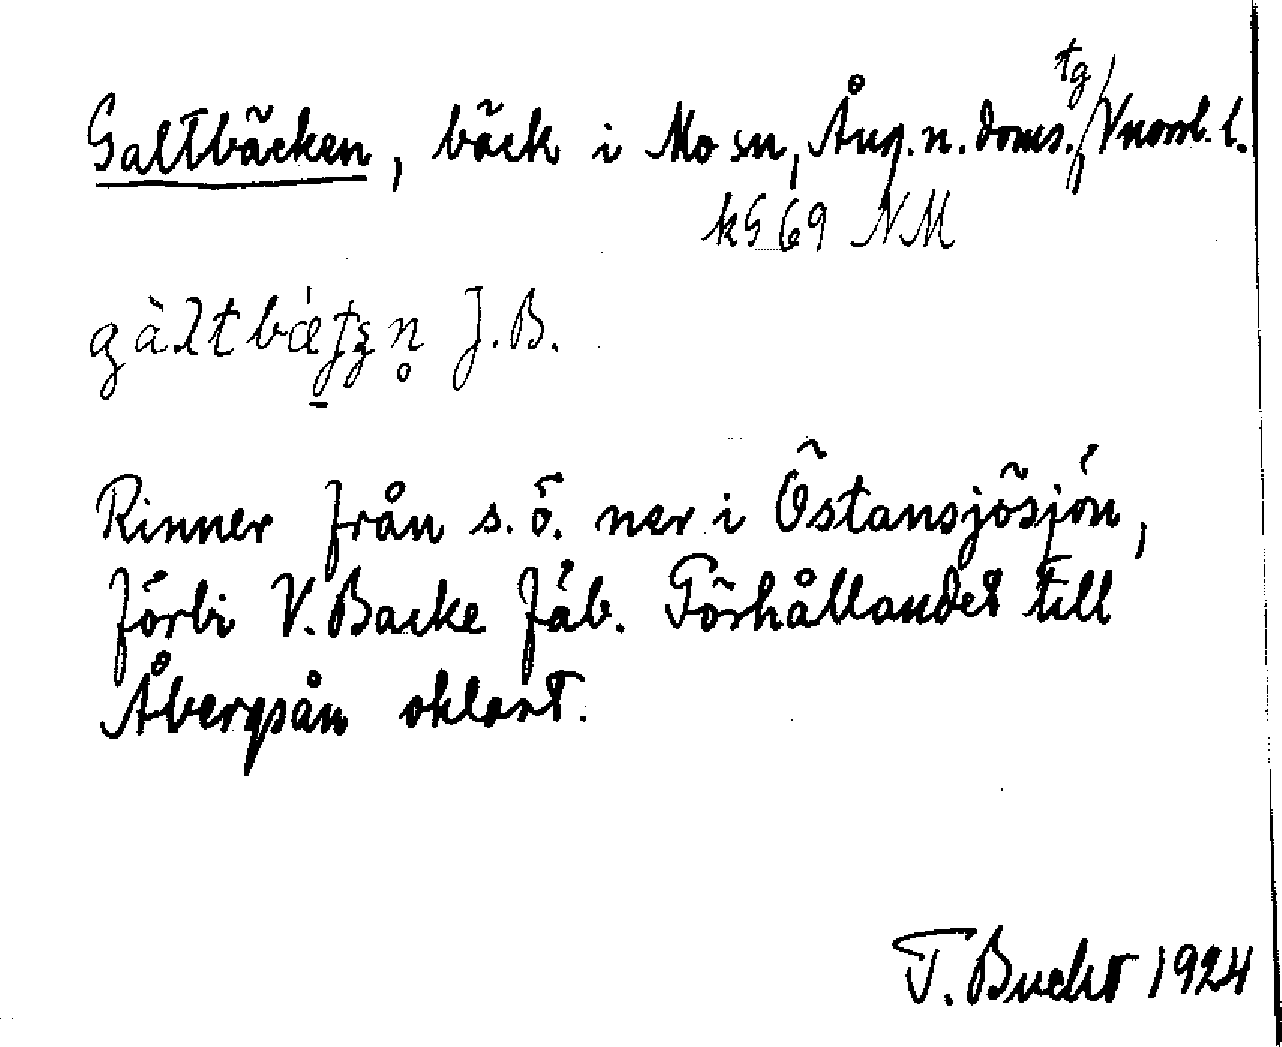 Galtbäcken, bäck i Mo sn, Ång. n. doms.tg/Vnorrl. l.
kG 69 NM
J.B.
Rinner från s.ö. ner i Östansjösjön,
förbi V. Backe fäb. Förhållandet till
Åbergsån oklart.
T. Bucht 1924